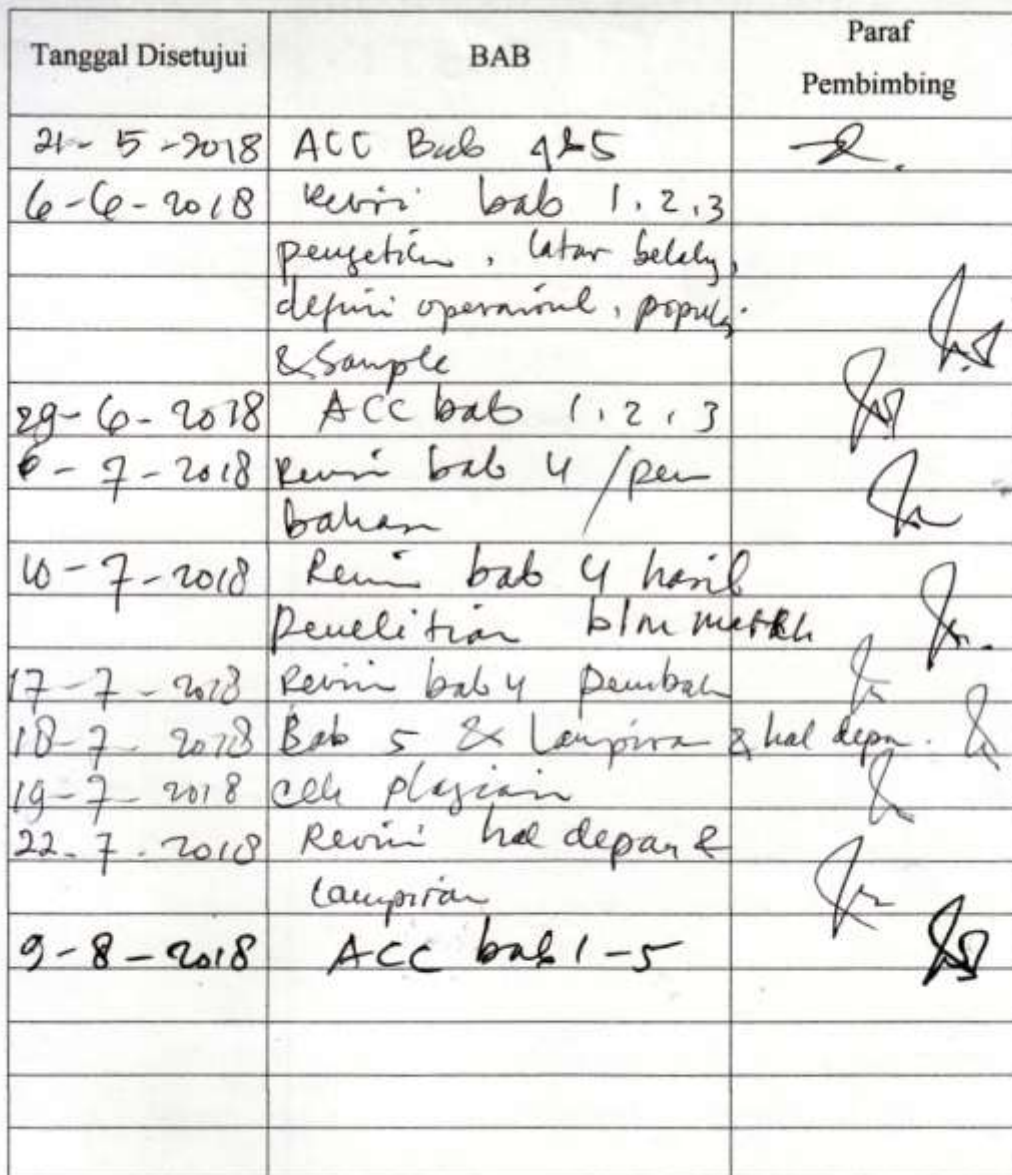 Tanggal Disetujui BAB Paraf
Pembimbing
21-5-2018 ACC Bab 4&5
6-6-2018 Revisi bab 1.2.3
pengetikan, latar belakg,
definisi operasional, popula.
& Sample
29-6-2018 ACC bab 1.2.3
6-7-2018 Revisi bab 4 / pem
bahasan
10-7-2018 Revisi bab 4 hasil
Penelitian blm
17-7-2018 Revisi bab 4 Pembah
18-7 2018 Bab 5 & Lampiran & hal depan.
19-7-2018 cek plagiasi
22.7.2018 Revisi hal depan &
Lampiran
9-8-2018 ACC bab 1-5